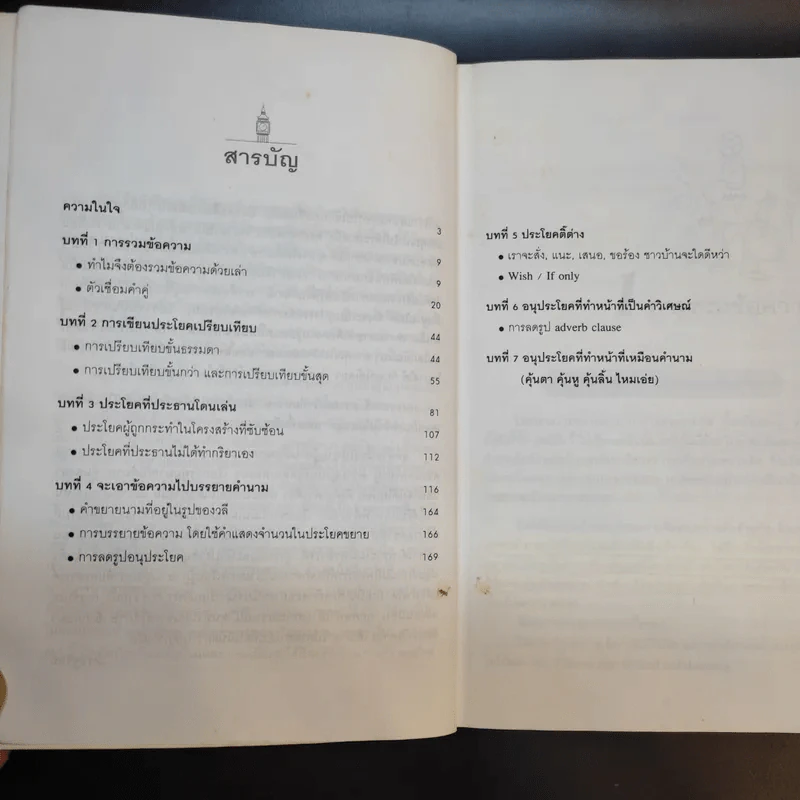 สารบัญ
ความในใจ 3
บทที่ 1 การรวมข้อความ 9
• ทำไมจึงต้องรวมข้อความด้วยเล่า 9
• ตัวเชื่อมคำคู่ 20
บทที่ 2 การเขียนประโยคเปรียบเทียบ 44
• การเปรียบเทียบขั้นธรรมดา 44
• การเปรียบเทียบขั้นกว่า และการเปรียบเทียบขั้นสุด 55
บทที่ 3 ประโยคที่ประธานโดนเล่น 81
• ประโยคผู้ถูกกระทำในโครงสร้างที่ซับซ้อน 107
• ประโยคที่ประธานไม่ได้ทำกริยาเอง 112
บทที่ 4 จะเอาข้อความไปบรรยายคำนาม 116
• คำขยายนามที่อยู่ในรูปของวลี 164
• การบรรยายข้อความ โดยใช้คำแสดงจำนวนในประโยคขยาย 166
• การลดรูปอนุประโยค 169
บทที่ 5 ประโยคติ๊ต่าง
• เราจะสั่ง, แนะ, เสนอ, ขอร้อง ชาวบ้านจะใดดีหว่า
• Wish / If only
บทที่ 6 อนุประโยคที่ทำหน้าที่เป็นคำวิเศษณ์
• การลดรูป adverb clause
บทที่ 7 อนุประโยคที่ทำหน้าที่เหมือนคำนาม
(คุ้นตา คุ้นหู คุ้นลิ้น ไหมเอ่ย)